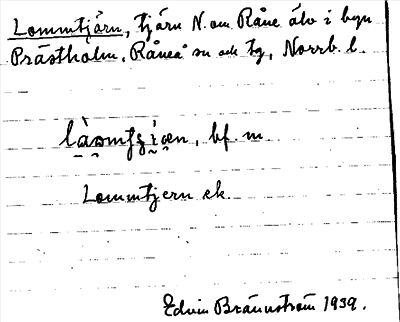 Lommtjärn, tjärn N. om Råne älv i byn
Prästholm, Råneå sn och tg, Norrb. l.
bf. m.
Lommtjern ek.
Edvin Brännström 1939.